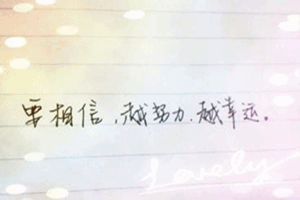 要相信，越努力、越幸运。
Lovely